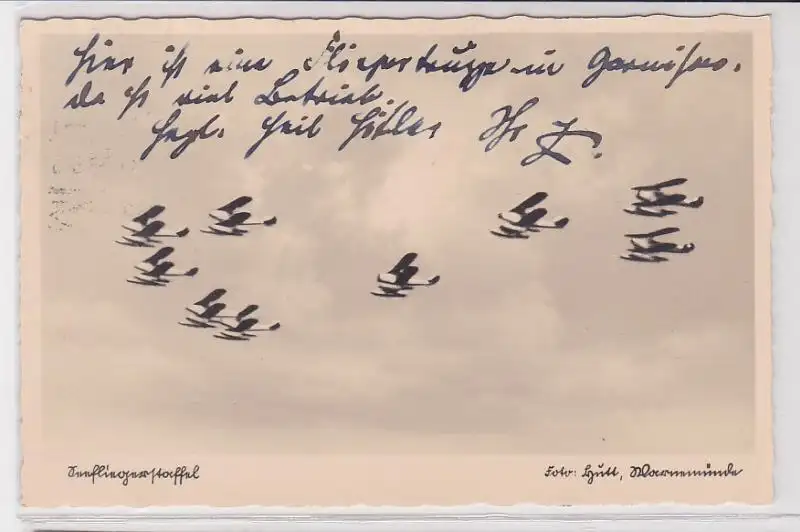 Hier ist eine Fliegertruppe in Garnison,
da ist viel Betrieb.
Hrzl. Heil Hitler Ihr
Seefliegerstaffel
Foto: Hutt, Warnemünde